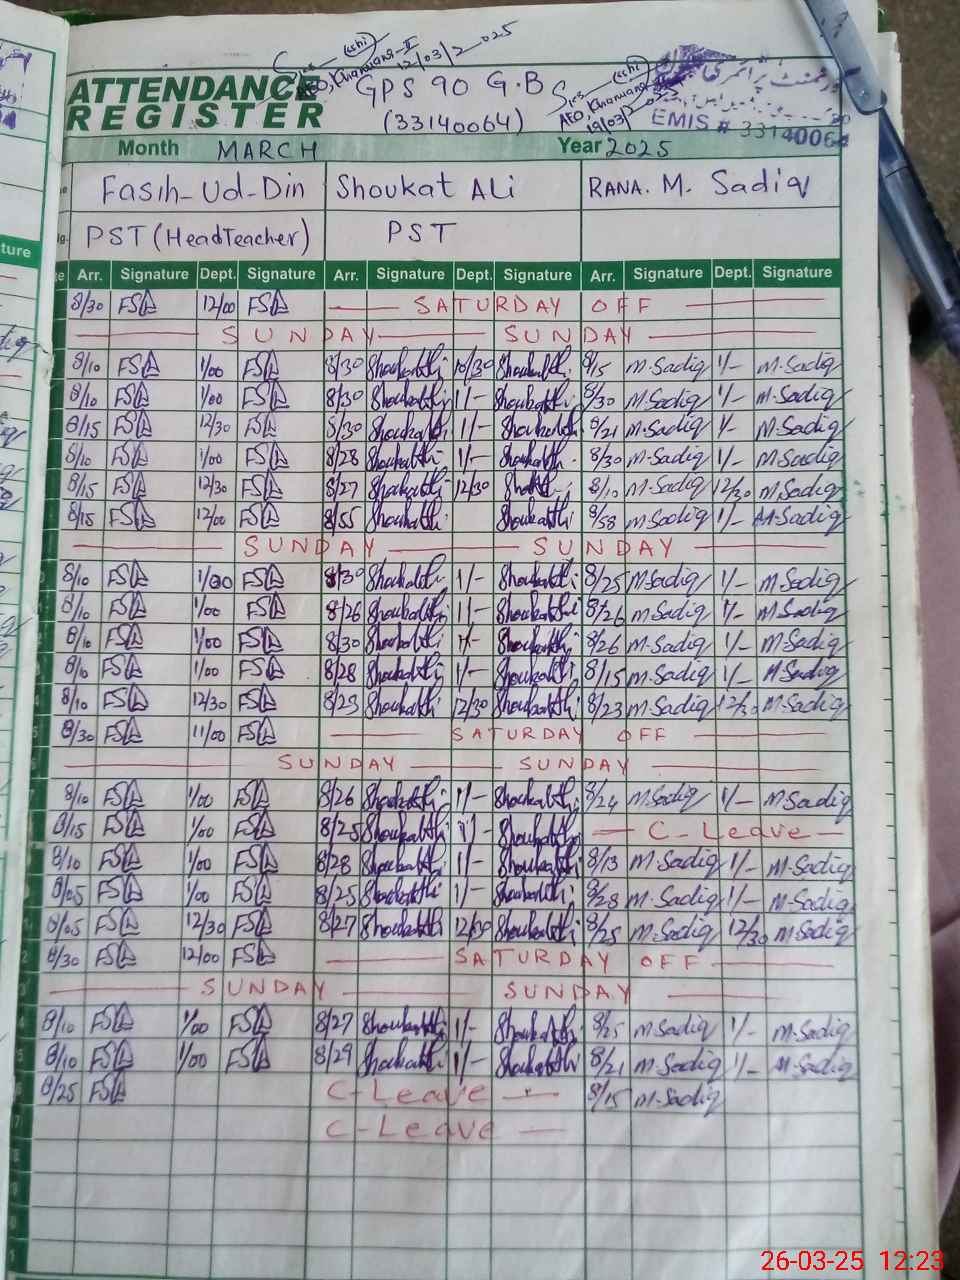 ATTENDANCE GPS 90 G.B
REGISTER (33140064)
12/03/2025
19/03/2025
EMIS # 33140064
Month MARCH Year 2025
Fasih-Ud-Din Shoukat Ali RANA. M. Sadiq
PST (HeadTeacher) PST
Arr. Signature Dept. Signature Arr. Signature Dept. Signature Arr. Signature Dept. Signature
8/30 12/00 SATURDAY OFF
SUNDAY SUNDAY
8/10 1/00 8/30 Shoukat Ali 10/30 Shoukat Ali 8/15 M.Sadiq 1/- M.Sadiq
8/10 1/00 8/30 Shoukat Ali 1/- Shoukat Ali 8/30 M.Sadiq 1/- M.Sadiq
8/15 12/30 8/30 Shoukat Ali 1/- Shoukat Ali 8/21 M.Sadiq 1/- M.Sadiq
8/10 1/00 8/28 Shoukat Ali 1/- Shoukat Ali 8/30 M.Sadiq 1/- M.Sadiq
8/15 12/30 8/27 Shoukat Ali 12/30 8/10 M.Sadiq 12/30 M.Sadiq
8/15 12/00 8/55 Shoukat Ali Shoukat Ali 8/58 M.Sadiq 1/- M.Sadiq
SUNDAY SUNDAY
8/10 1/00 8/30 Shoukat Ali 1/- Shoukat Ali 8/25 M.Sadiq 1/- M.Sadiq
8/10 1/00 8/26 Shoukat Ali 1/- Shoukat Ali 8/26 M.Sadiq 1/- M.Sadiq
8/10 1/00 8/30 Shoukat Ali 1/- Shoukat Ali 8/26 M.Sadiq 1/- M.Sadiq
8/10 1/00 8/28 Shoukat Ali 1/- Shoukat Ali 8/15 M.Sadiq 1/- M.Sadiq
8/10 12/30 8/23 Shoukat Ali 12/30 Shoukat Ali 8/23 M.Sadiq 12/30 M.Sadiq
8/30 11/00 SATURDAY OFF
SUNDAY SUNDAY
8/10 1/00 8/26 Shoukat Ali 1/- Shoukat Ali 8/24 M.Sadiq 1/- M.Sadiq
8/15 1/00 8/25 Shoukat Ali 1/- Shoukat Ali C-Leave
8/10 1/00 8/28 Shoukat Ali 1/- Shoukat Ali 8/13 M.Sadiq 1/- M.Sadiq
8/05 1/00 8/25 Shoukat Ali 1/- Shoukat Ali 8/28 M.Sadiq 1/- M.Sadiq
8/05 12/30 8/27 Shoukat Ali 12/30 Shoukat Ali 8/25 M.Sadiq 12/30 M.Sadiq
8/30 12/00 SATURDAY OFF
SUNDAY SUNDAY
8/10 1/00 8/27 Shoukat Ali 1/- Shoukat Ali 8/25 M.Sadiq 1/- M.Sadiq
8/10 1/00 8/29 Shoukat Ali 1/- Shoukat Ali 8/21 M.Sadiq 1/- M.Sadiq
8/25 C-Leave 8/15 M.Sadiq
C-Leave
26-03-25 12:23